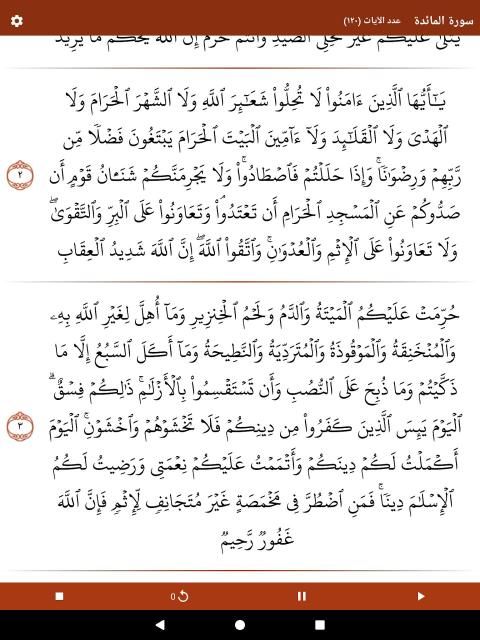 سورة المائدة عدد الآيات (١٢٠)
يُتْلَىٰ عَلَيْكُمْ غَيْرَ مُحِلِّى ٱلصَّيْدِ وَأَنتُمْ حُرُمٌ إِنَّ ٱللَّهَ يَحْكُمُ مَا يُرِيدُ
يَـٰٓأَيُّهَا ٱلَّذِينَ ءَامَنُوا۟ لَا تُحِلُّوا۟ شَعَـٰٓئِرَ ٱللَّهِ وَلَا ٱلشَّهْرَ ٱلْحَرَامَ وَلَا
ٱلْهَدْىَ وَلَا ٱلْقَلَـٰٓئِدَ وَلَآ ءَآمِّينَ ٱلْبَيْتَ ٱلْحَرَامَ يَبْتَغُونَ فَضْلًا مِّن
رَّبِّهِمْ وَرِضْوَٰنًا ۚ وَإِذَا حَلَلْتُمْ فَٱصْطَادُوا۟ ۚ وَلَا يَجْرِمَنَّكُمْ شَنَـَٔانُ قَوْمٍ أَن
٢
صَدُّوكُمْ عَنِ ٱلْمَسْجِدِ ٱلْحَرَامِ أَن تَعْتَدُوا۟ ۘ وَتَعَاوَنُوا۟ عَلَى ٱلْبِرِّ وَٱلتَّقْوَىٰ ۖ
وَلَا تَعَاوَنُوا۟ عَلَى ٱلْإِثْمِ وَٱلْعُدْوَٰنِ ۚ وَٱتَّقُوا۟ ٱللَّهَ ۖ إِنَّ ٱللَّهَ شَدِيدُ ٱلْعِقَابِ
حُرِّمَتْ عَلَيْكُمُ ٱلْمَيْتَةُ وَٱلدَّمُ وَلَحْمُ ٱلْخِنزِيرِ وَمَآ أُهِلَّ لِغَيْرِ ٱللَّهِ بِهِۦ
وَٱلْمُنْخَنِقَةُ وَٱلْمَوْقُوذَةُ وَٱلْمُتَرَدِّيَةُ وَٱلنَّطِيحَةُ وَمَآ أَكَلَ ٱلسَّبُعُ إِلَّا مَا
ذَكَّيْتُمْ وَمَا ذُبِحَ عَلَى ٱلنُّصُبِ وَأَن تَسْتَقْسِمُوا۟ بِٱلْأَزْلَـٰمِ ۚ ذَٰلِكُمْ فِسْقٌ ۗ
ٱلْيَوْمَ يَئِسَ ٱلَّذِينَ كَفَرُوا۟ مِن دِينِكُمْ فَلَا تَخْشَوْهُمْ وَٱخْشَوْنِ ۚ ٱلْيَوْمَ
٣
أَكْمَلْتُ لَكُمْ دِينَكُمْ وَأَتْمَمْتُ عَلَيْكُمْ نِعْمَتِى وَرَضِيتُ لَكُمُ
ٱلْإِسْلَـٰمَ دِينًا ۚ فَمَنِ ٱضْطُرَّ فِى مَخْمَصَةٍ غَيْرَ مُتَجَانِفٍ لِّإِثْمٍ ۙ فَإِنَّ ٱللَّهَ
غَفُورٌ رَّحِيمٌ
0